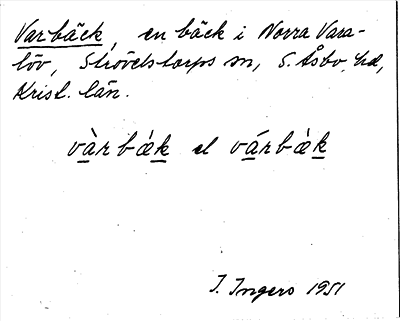 Varbäck, en bäck i Norra Vara-
löv, Strövelstorps sn, S. Åsbo hd,
Krist. län.
vàrbǽk el várbæ̀k
I. Ingers 1951